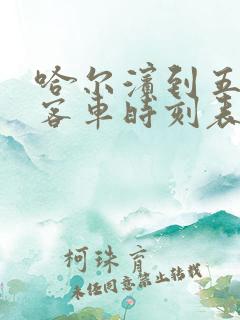 哈尔滨到五
客车时刻表
柯珠育
未经同意禁止转载